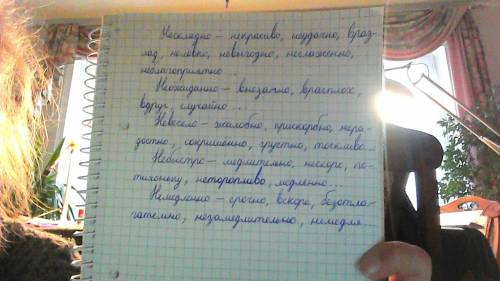 Нескладно – некрасиво, неудачно, враз-
лад, неловко, невыгодно, неслаженно,
неблагоприятно...
Неожиданно – внезапно, врасплох,
вдруг, случайно...
Невесело – жалобно, прискорбно, нера-
достно, сокрушенно, грустно, тоскливо...
Небыстро – медлительно, нескоро, по-
тихоньку, неторопливо, медленно...
Немедленно – срочно, вскоре, безотла-
гательно, незамедлительно, немедля...